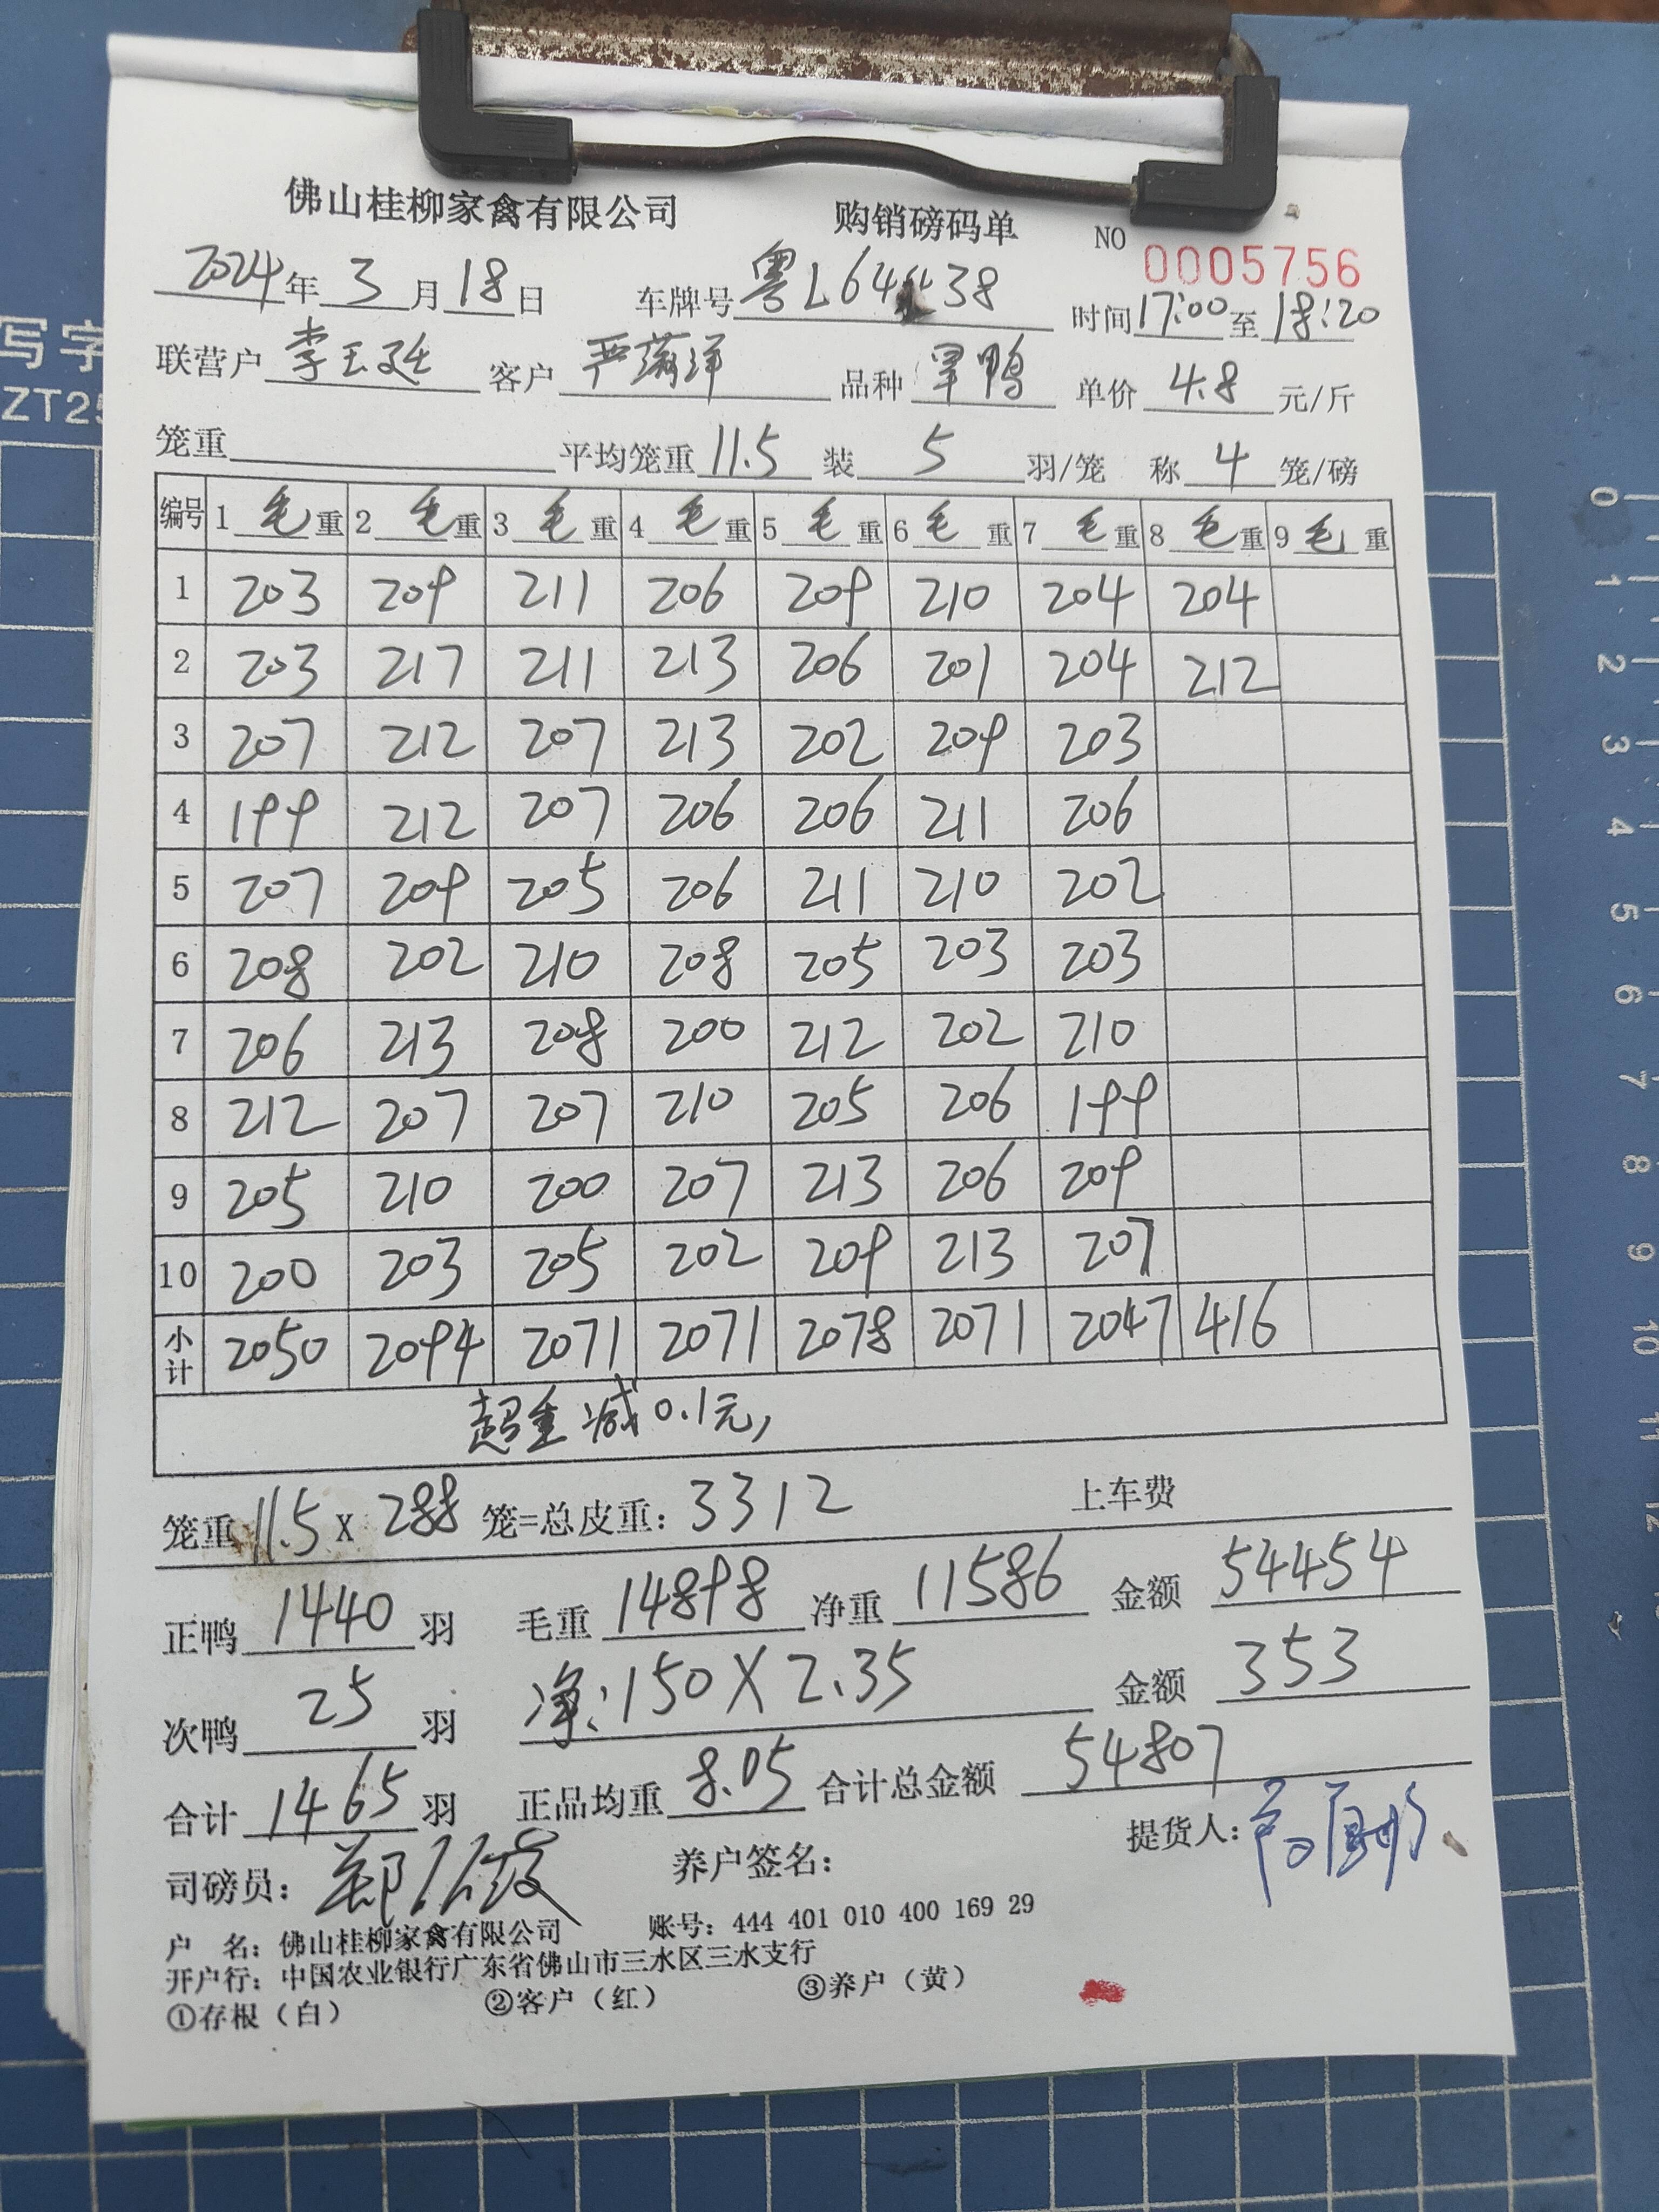 佛山桂柳家禽有限公司 购销磅码单 NO 0005756
2024年3月18日 车牌号 粤L64 38 时间17:00至18:20
联营户 李玉廷 客户 严 洋 品种 旱鸭 单价 4.8 元/斤
笼重 平均笼重 11.5 装 5 羽/笼 称 4 笼/磅
编号 1 毛重 2 毛重 3 毛重 4 毛重 5 毛重 6 毛重 7 毛重 8 毛重 9 毛重
1 203 209 211 206 209 210 204 204
2 203 217 211 213 206 201 204 212
3 207 212 207 213 202 209 203
4 199 212 207 206 206 211 206
5 207 209 205 206 211 210 202
6 208 202 210 208 205 203 203
7 206 213 208 200 212 202 210
8 212 207 207 210 205 206 199
9 205 210 200 207 213 206 209
10 200 203 205 202 209 213 207
小计 2050 2094 2071 2071 2078 2071 2047 416
超重减0.1元,
笼重 11.5 X 288 笼=总皮重: 3312 上车费
正鸭 1440 羽 毛重 14898 净重 11586 金额 54454
次鸭 25 羽 净:150X2.35 金额 353
合计 1465 羽 正品均重 8.05 合计总金额 54807
司磅员: 郑 养户签名: 提货人:
户 名: 佛山桂柳家禽有限公司 账号: 444 401 010 400 169 29
开户行: 中国农业银行广东省佛山市三水区三水支行
①存根(白) ②客户(红) ③养户(黄)
写字
ZT25
0
1
2
3
4
5
6
7
8
9
10
11
12